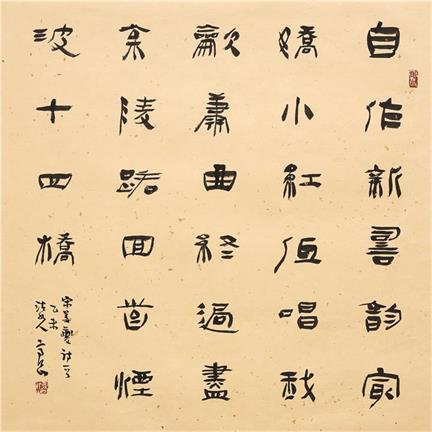 自作新詞韵最
嬌小紅低唱我
吹簫曲終過盡
松陵路回首煙
波十四橋
宋姜夔詩
乙未